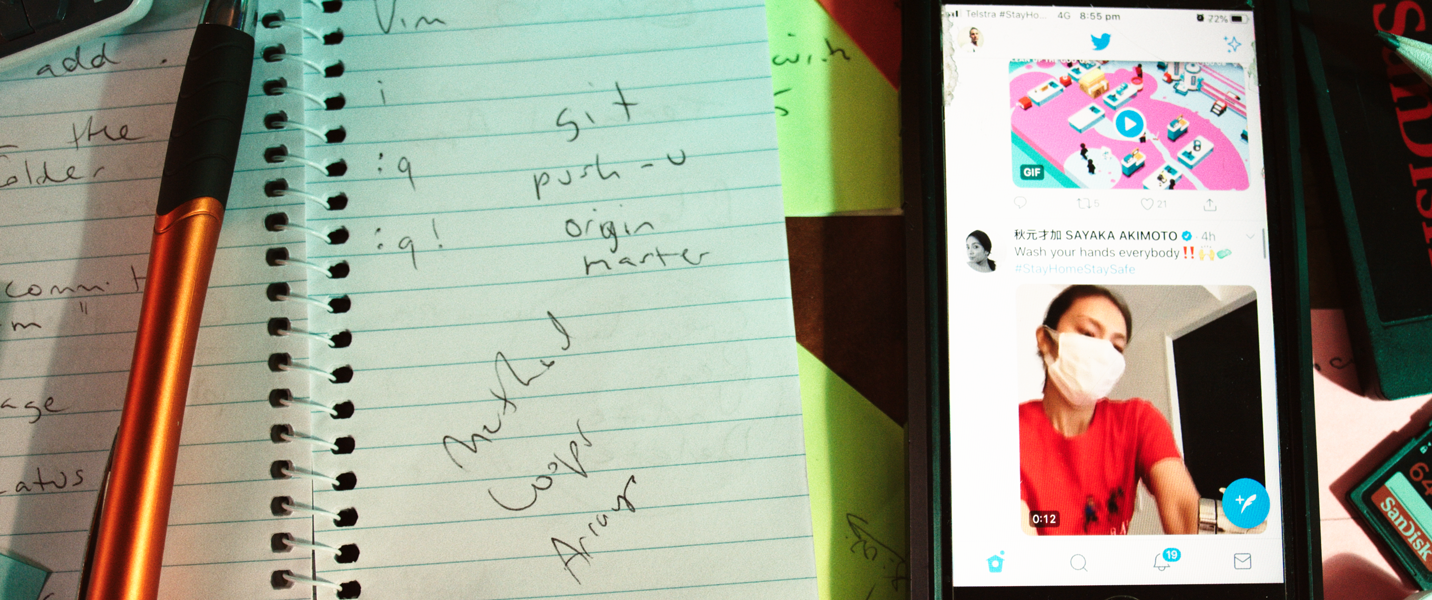 add.
the
older
comm.t
m "
age
atus
Vim
i
:q
:q!
git
push -u
origin
master
Method
Loops
Arrays
with
Telstra #StayHo... 4G 8:55 pm 22%
GIF
5 21
秋元才加 SAYAKA AKIMOTO · 4h
Wash your hands everybody‼️🙌🧼
#StayHomeStaySafe
0:12
19
SanDisk
64
SanDisk